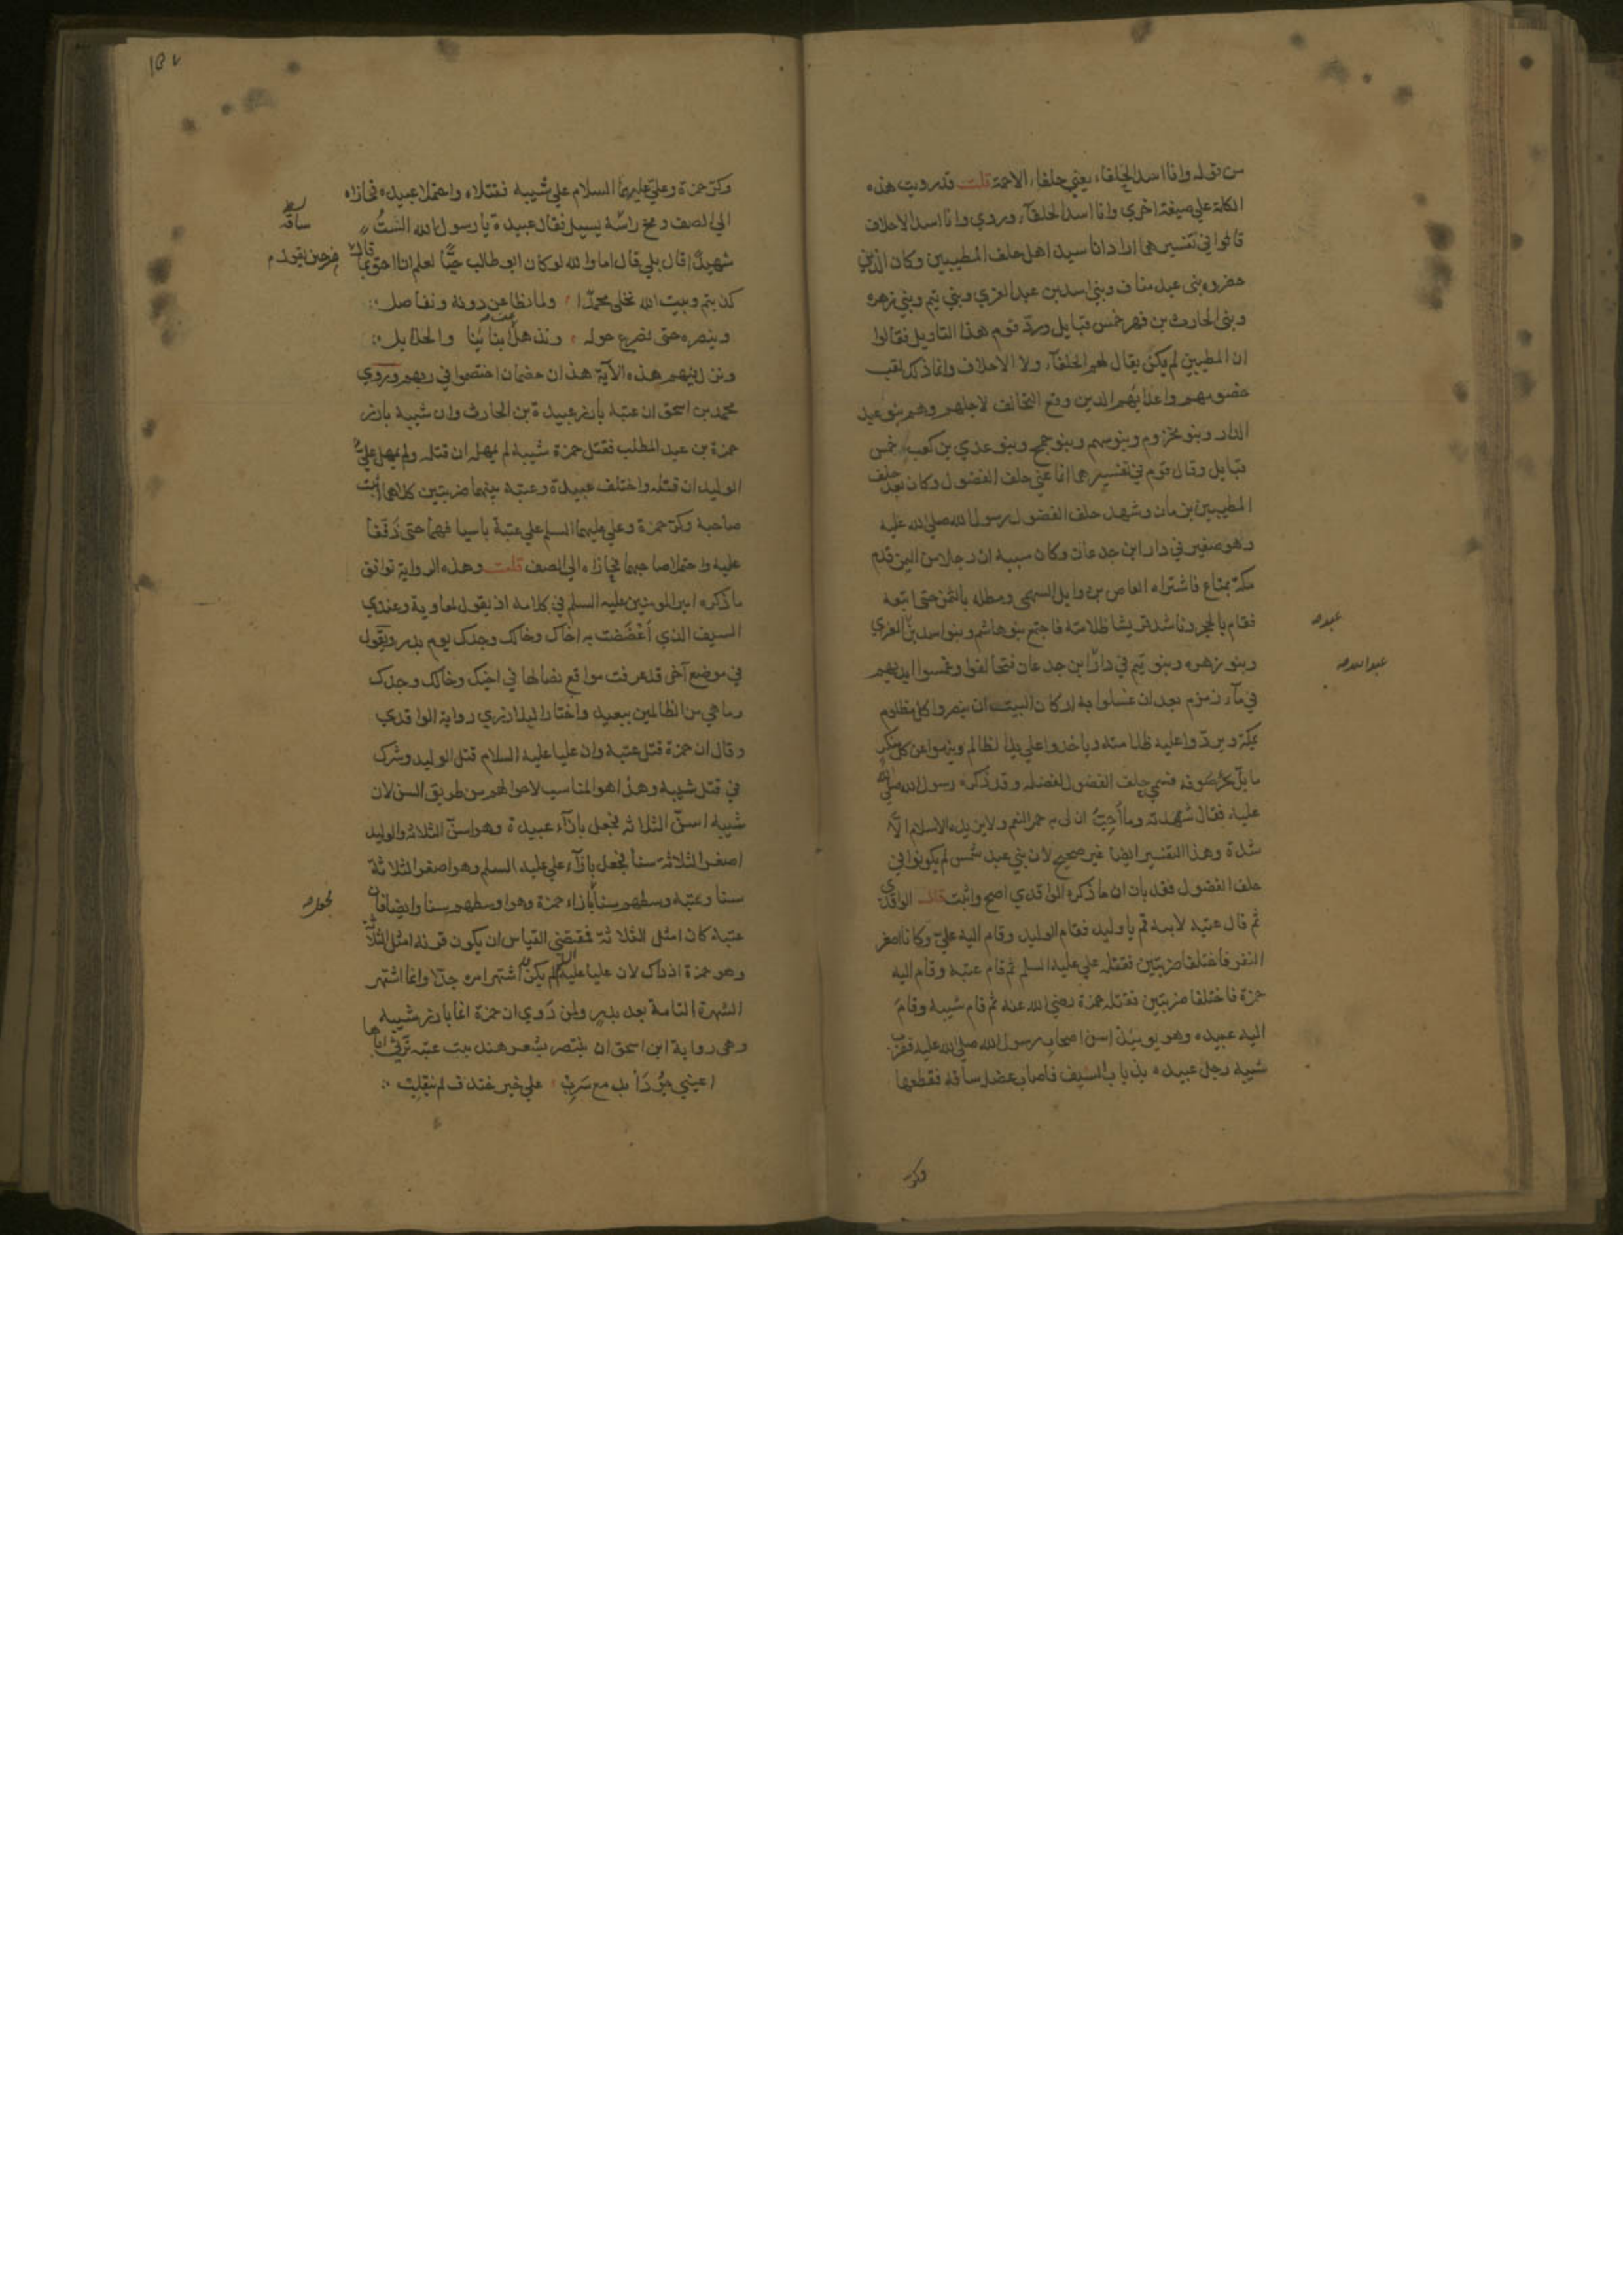 من قوله وانا اسد الحلفاء يعني حلفاء الاجمة قلت قد رويت هذه
الكلمة علي صيغة اخري وانا اسد الحلفآء وروي وانا اسد الاحلاف
قالوا في تفسيرهما اراد انا سيد اهل حلف المطيبين وكان الذين
حضروه بني عبد مناف وبني اسد بن عبد العزي وبني تيم وبني زهره
وبني الحارث بن فهر خمس قبايل ورد قوم هذا التاويل فقالوا
ان المطيبين لم يكن يقال لهم الحلفآء ولا الاحلاف وانما ذلك لقب
خصومهم واعدائهم الذين وقع التحالف لاجلهم وهم بنو عبد
الدار وبنو مخزوم وبنو سهم وبنو جمح وبنو عدي بن كعب خمس
قبايل وقال قوم في تفسيرهما انما عني حلف الفضول وكان بعد حلف
المطيبين بزمان وشهد حلف الفضول رسول الله صلي الله عليه
وهو صغير في دار ابن جدعان وكان سببه ان رجلا من اليمن قدم
مكة بمتاع فاشتراه العاص بن وايل السهمي ومطله بالثمن حتي اتعبه
فقام بالحجر وناشد قريشا ظلامته فاجتمع بنو هاشم وبنو اسد بن العزي
عبد
وبنو زهره وبنو تيم في دار ابن جدعان فتحالفوا وغمسوا ايديهم
عبد الله
في مآء زمزم بعد ان غسلوا به اركان البيت ان ينصروا كل مظلوم
بمكة ويردوا عليه ظلامته وياخذوا علي يد الظالم وينهوا عن كل منكر
ما بل بحر صوفه فسمي حلف الفضول لفضله وقد ذكره رسول الله صلي الله
عليه فقال شهدته وما احب ان لي به حمر النعم ولا يزيده الاسلام الا
شدة وهذا التفسير ايضا غير صحيح لان بني عبد شمس لم يكونوا في
حلف الفضول فقد بان ان ما ذكره الواقدي اصح واثبت قال الواقدي
ثم قال عتبه لابنه قم يا وليد فقام الوليد وقام اليه علي وكانا اصغر
النفر فاختلفا ضربتين فقتله علي عليه السلم ثم قام عتبة وقام اليه
حمزة فاختلفا ضربتين فقتله حمزة رضي الله عنه ثم قام شيبه وقام
اليه عبيده وهو يومئذ اسن اصحاب رسول الله صلي الله عليه فضرب
شيبه رجل عبيده بذباب السيف فاصاب عضلة ساقه فقطعها
وكر
وكر حمزة وعلي عليهما السلام علي شيبه فقتلاه واحتملا عبيده فحازاه
الي الصف ومخ ساقه يسيل فقال عبيدة يا رسول الله الست
ساقه
شهيدا قال بلي قال اما والله لو كان ابو طالب حيا لعلم انا احق بما قال
حين يقول
كذبتم وبيت الله نخلي محمدا ولما نطاعن دونه ونناضل
وننصره حتي نصرع حوله ونذهل عن ابنائنا والحلايل
ونزل فيهم هذه الآية هذان خصمان اختصموا في ربهم وروي
محمد بن اسحق ان عتبه بارز عبيدة بن الحارث وان شيبه بارز
حمزة بن عبد المطلب فقتل حمزة شيبه لم يمهله ان قتله ولم يمهل علي
الوليد ان قتله واختلف عبيدة وعتبة بينهما ضربتين كلاهما اثبت
صاحبه وكر حمزة وعلي عليهما السلم علي عتبة باسيافهما حتي ذففا
عليه واحتملا صاحبهما فحازاه الي الصف قلت وهذه الرواية توافق
ما ذكره امير المومنين عليه السلم في كلامه اذ يقول لمعاوية وعندي
السيف الذي اعضضت به اخاك وخالك وجدك يوم بدر ويقول
في موضع آخر قد عرفت مواقع نصالها في اخيك وخالك وجدك
وما هي من الظالمين ببعيد واختار البلاذري رواية الواقدي
وقال ان حمزة قتل عتبه وان عليا عليه السلام قتل الوليد وشرك
في قتل شيبه وهذا هو المناسب لاحوالهم من طريق السن لان
شيبه اسن الثلاثه فجعل بازآء عبيدة وهو اسن الثلاثه والوليد
اصغر الثلاثه سنا فجعل بازآء علي عليه السلم وهو اصغر الثلاثة
سنا وعتبه وسطهم سنا بازاء حمزة وهو اوسطهم سنا وايضا فان
فجعل
عتبه كان امثل الثلاثة فمقتضي القياس ان يكون قرنه امثل الثلاثه
وهو حمزة اذ ذاك لان عليا عليه السلم لم يكن قد اشتهر امره جدا وانما اشتهر
الشهرة التامة بعد بدر ولمن روي ان حمزة انما بارز شيبه
وهي رواية ابن اسحق ان ينتصر بشعر هند بنت عتبه ترثي اباها
اعيني جودا بدمع سرب علي خير خندف لم ينقلب